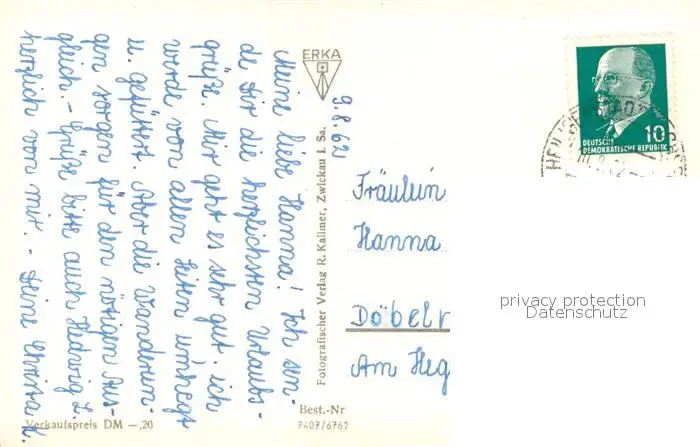 9.8.62
Meine liebe Hanna! Ich sen-
de Dir die herzlichsten Urlaubs-
grüße. Mir geht es sehr gut. ich
werde von allen Seiten umhegt
u. gefüttert. Aber die Wanderun-
gen sorgen für den nötigen Aus-
gleich. - Grüße bitte auch Hedwig Z.
herzlich von mir. - Deine Christa K.
ERKA
Fotografischer Verlag R. Kallmer, Zwickau i. Sa.
Verkaufspreis DM —,20
Best.-Nr
7407/6762
10
DEUTSCHE
DEMOKRATISCHE REPUBLIK
Fräulein
Hanna
Döbeln
Am Heg
privacy protection
Datenschutz